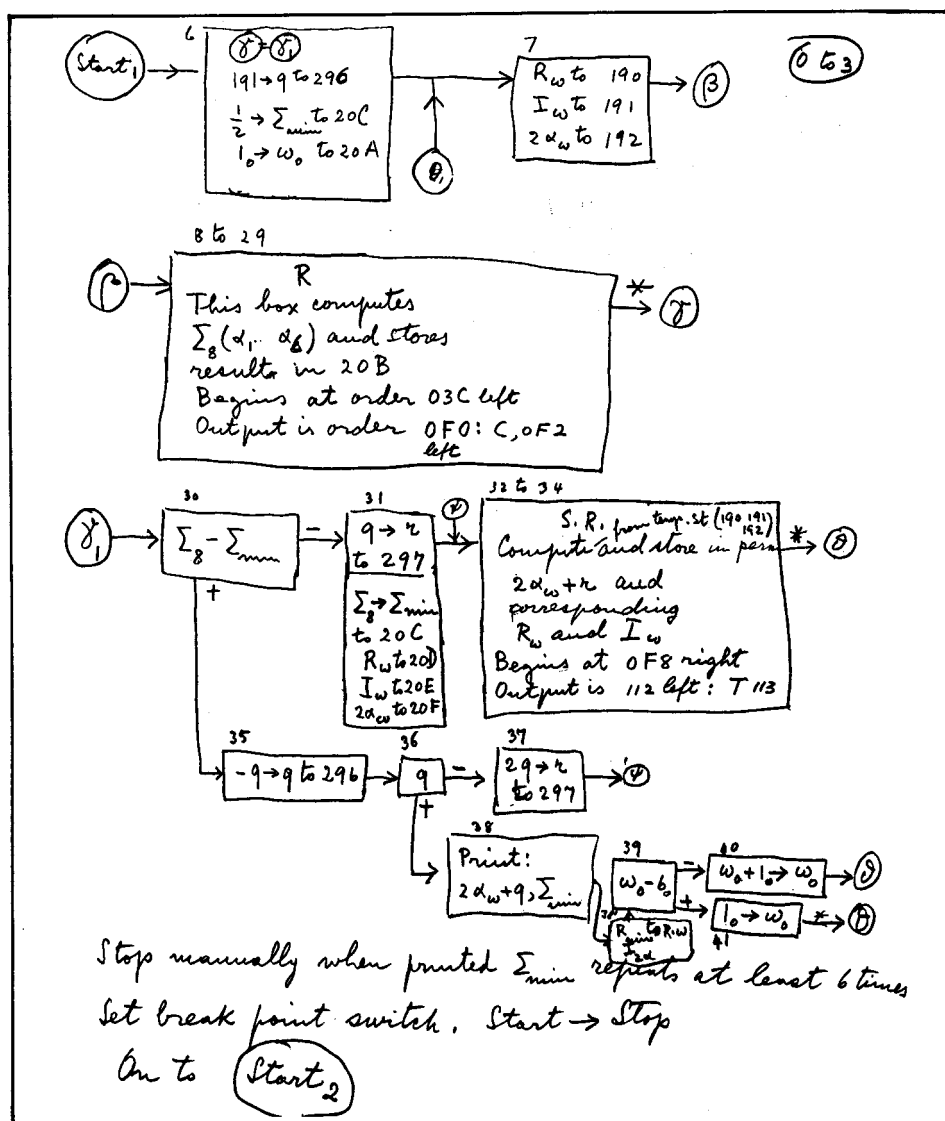 Start₁
6
γ = γ₁
191 → q to 296
½ → Σmin to 20C
1₀ → ω₀ to 20A
θ₁
7
Rω to 190
Iω to 191
2αω to 192
β
0 to 3
8 to 29
β
R
This box computes
Σ₈(α₁.. α₆) and stores
results in 20B
Begins at order 03C left
Output is order 0F0: C, 0F2
left
*
γ
γ₁
30
Σ₈ - Σmin
-
+
31
q → r
to 297
Σ₈ → Σmin
to 20C
Rω to 20D
Iω to 20E
2αω to 20F
ψ
32 to 34
S.R. from temp. st (190 191
192)
Compute and store in perm
2αω + r and
corresponding
Rω and Iω
Begins at 0F8 right
Output is 112 left: T 113
*
θ
35
-q → q to 296
36
q
-
+
37
2q → r
to 297
ψ
38
Print:
2αω + q, Σmin
39
ω₀ - 6₀
-
+
40
ω₀ + 1₀ → ω₀
θ
1₀ → ω₀
41
*
R min to R, ω
I
2α
Stop manually when printed Σmin repeats at least 6 times
Set break point switch. Start → Stop
On to Start₂